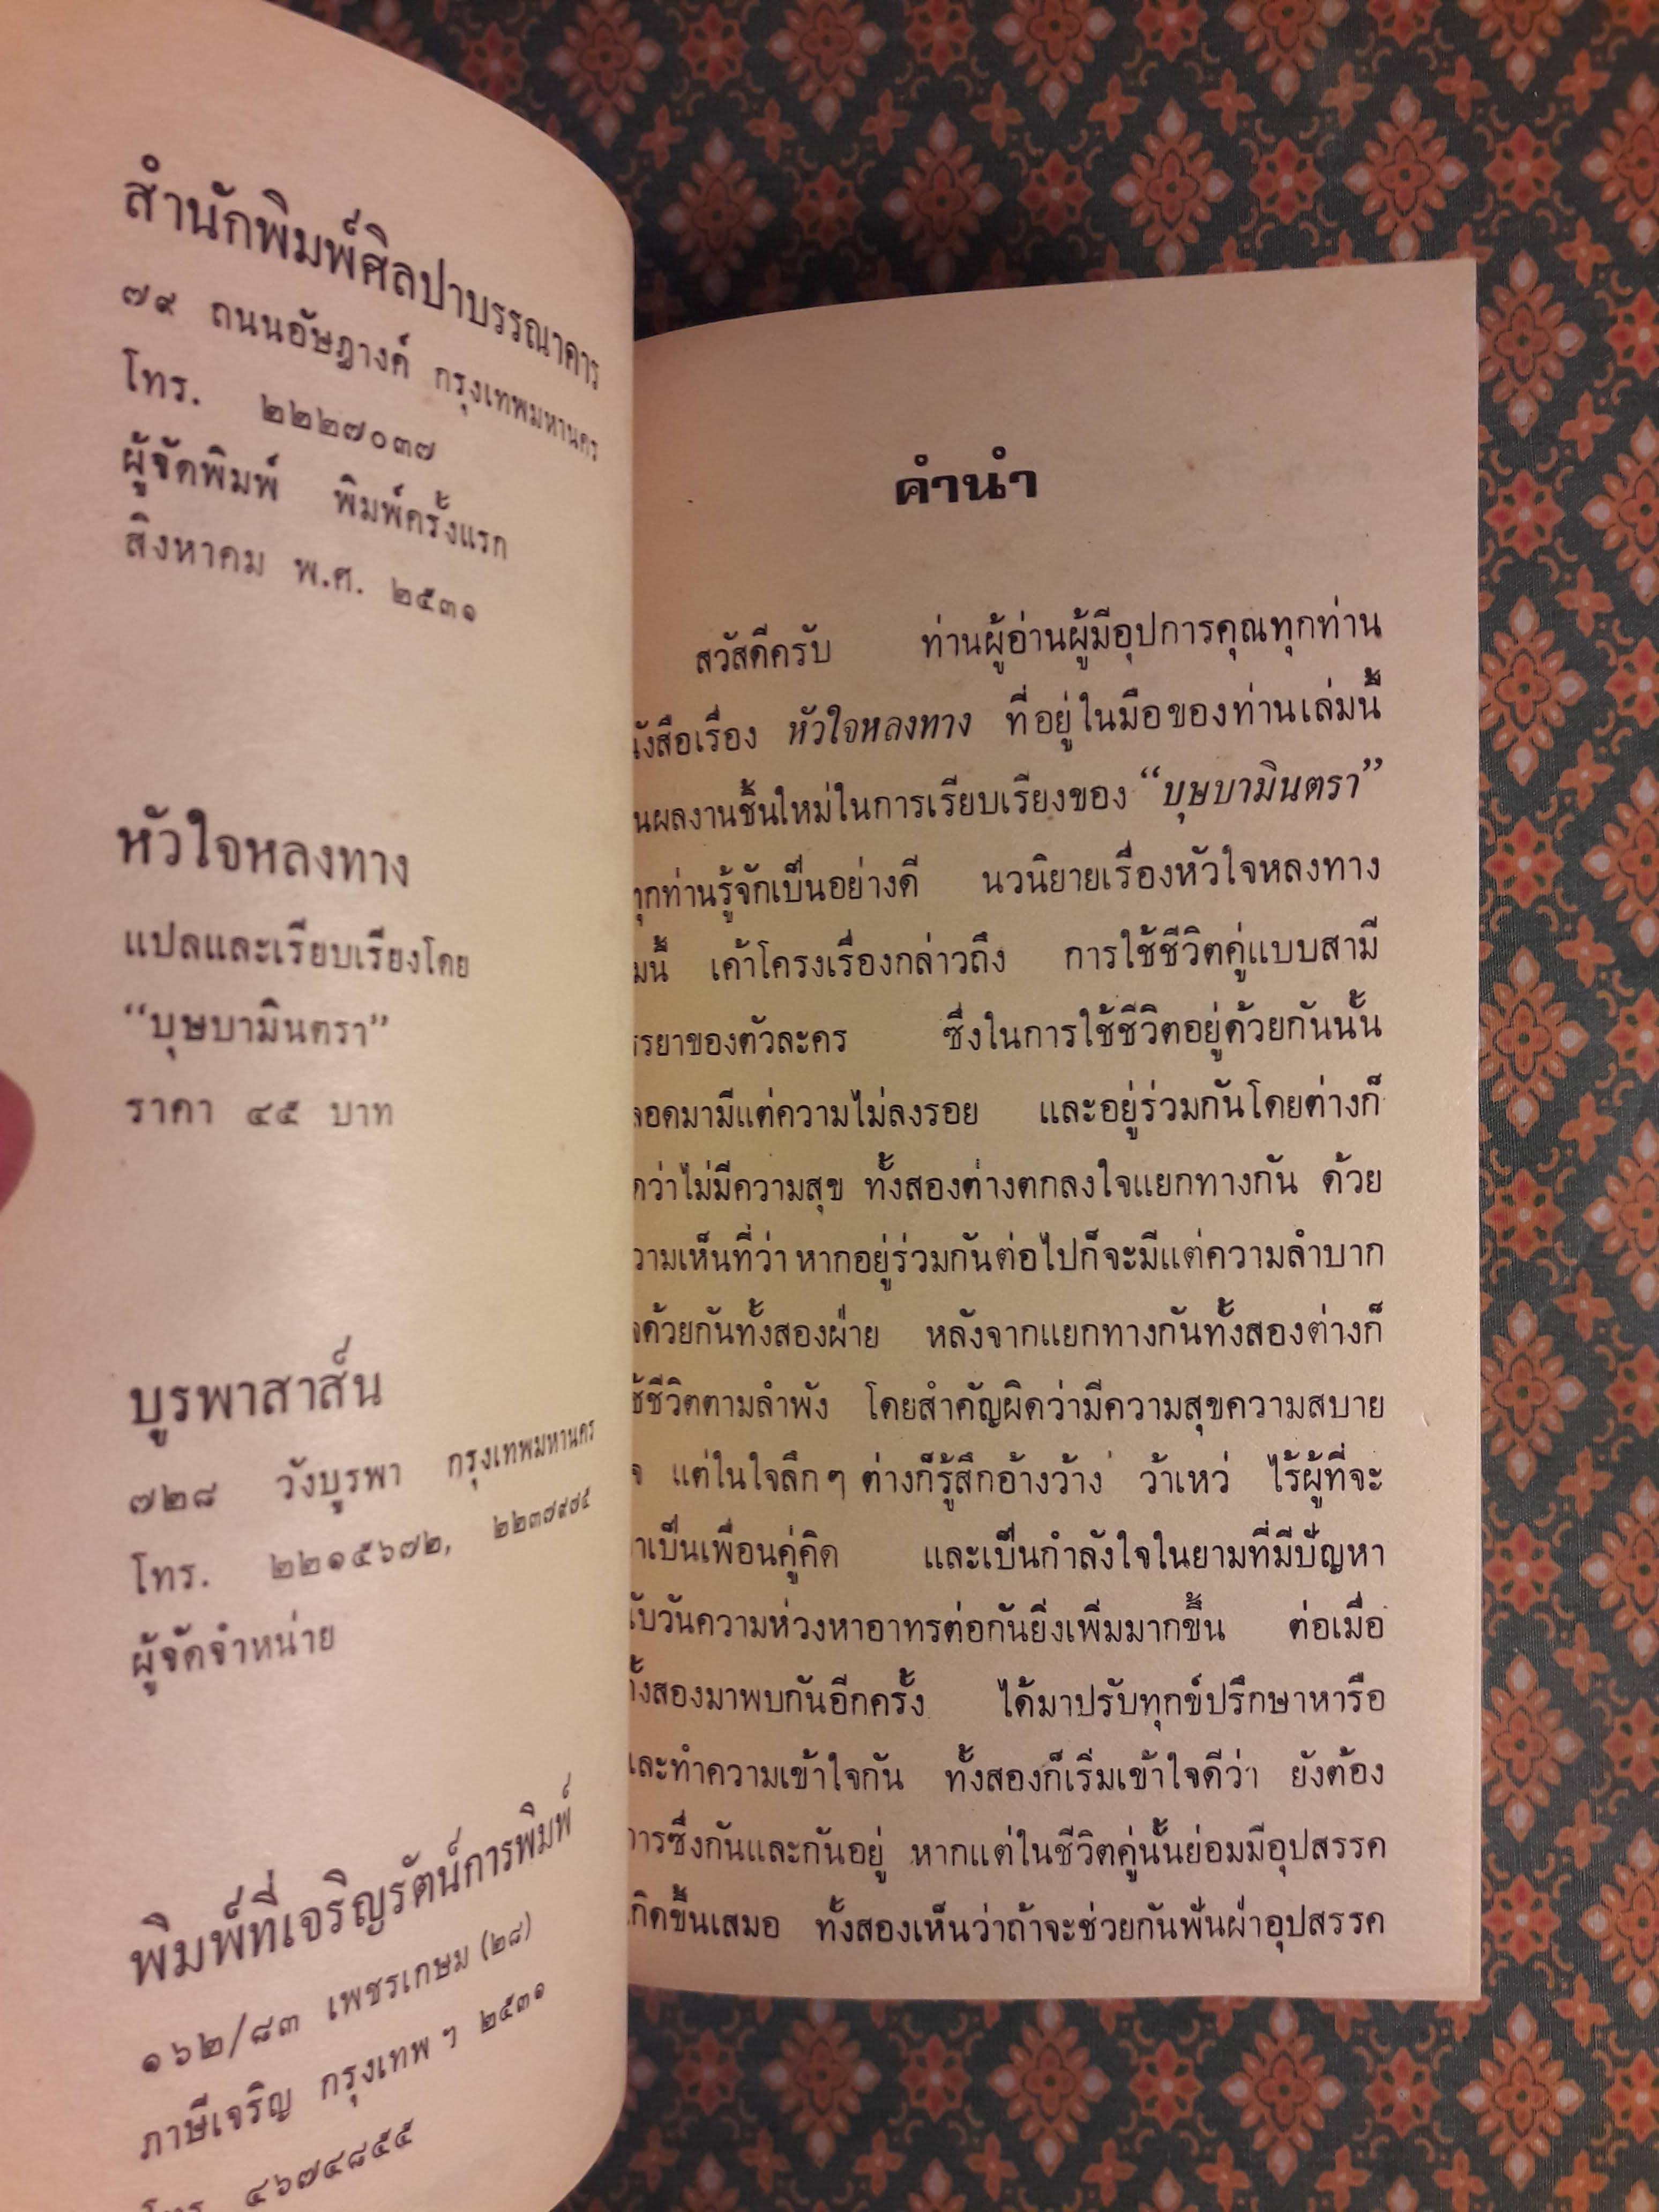 สำนักพิมพ์ศิลปาบรรณาคาร
๗๙ ถนนอัษฎางค์ กรุงเทพมหานคร
โทร. ๒๒๒๗๐๓๗
ผู้จัดพิมพ์ พิมพ์ครั้งแรก
สิงหาคม พ.ศ. ๒๕๓๑
หัวใจหลงทาง
แปลและเรียบเรียงโดย
“บุษบามินตรา”
ราคา ๔๕ บาท
บูรพาสาส์น
๗๒๘ วังบูรพา กรุงเทพมหานคร
โทร. ๒๒๑๕๖๗๒, ๒๒๓๗๙๗๕
ผู้จัดจำหน่าย
พิมพ์ที่เจริญรัตน์การพิมพ์
๑๖๒/๘๓ เพชรเกษม (๒๘)
ภาษีเจริญ กรุงเทพ ฯ ๒๕๓๑
โทร. ๔๖๗๔๘๕๕
คำนำ
สวัสดีครับ ท่านผู้อ่านผู้มีอุปการคุณทุกท่าน
ังสือเรื่อง หัวใจหลงทาง ที่อยู่ในมือของท่านเล่มนี้
นผลงานชิ้นใหม่ในการเรียบเรียงของ “บุษบามินตรา”
ทุกท่านรู้จักเป็นอย่างดี นวนิยายเรื่องหัวใจหลงทาง
มนี้ เค้าโครงเรื่องกล่าวถึง การใช้ชีวิตคู่แบบสามี
รรยาของตัวละคร ซึ่งในการใช้ชีวิตอยู่ด้วยกันนั้น
ลอดมามีแต่ความไม่ลงรอย และอยู่ร่วมกันโดยต่างก็
กว่าไม่มีความสุข ทั้งสองต่างตกลงใจแยกทางกัน ด้วย
วามเห็นที่ว่า หากอยู่ร่วมกันต่อไปก็จะมีแต่ความลำบาก
จด้วยกันทั้งสองฝ่าย หลังจากแยกทางกันทั้งสองต่างก็
ช้ชีวิตตามลำพัง โดยสำคัญผิดว่ามีความสุขความสบาย
จ แต่ในใจลึก ๆ ต่างก็รู้สึกอ้างว้าง ว้าเหว่ ไร้ผู้ที่จะ
าเป็นเพื่อนคู่คิด และเป็นกำลังใจในยามที่มีปัญหา
ับวันความห่วงหาอาทรต่อกันยิ่งเพิ่มมากขึ้น ต่อเมื่อ
ทั้งสองมาพบกันอีกครั้ง ได้มาปรับทุกข์ปรึกษาหารือ
และทำความเข้าใจกัน ทั้งสองก็เริ่มเข้าใจดีว่า ยังต้อง
การซึ่งกันและกันอยู่ หากแต่ในชีวิตคู่นั้นย่อมมีอุปสรรค
เกิดขึ้นเสมอ ทั้งสองเห็นว่าถ้าจะช่วยกันฟันฝ่าอุปสรรค